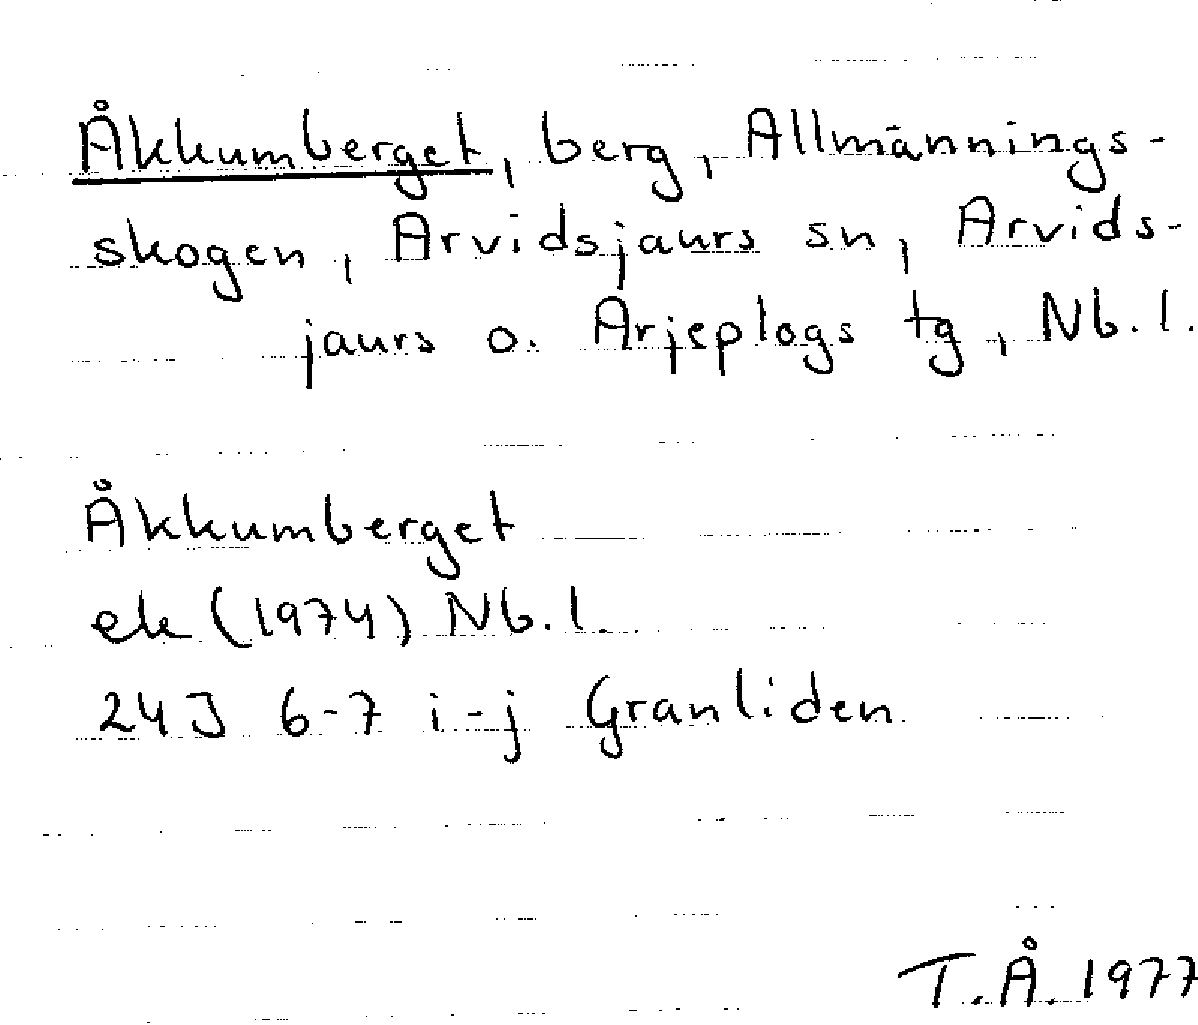 Åkkumberget, berg, Allmännings-
skogen, Arvidsjaurs sn, Arvids-
jaurs o. Arjeplogs tg, Nb.l.
Åkkumberget
ek (1974) Nb.l.
24J 6-7 i-j Granliden
T.Å. 1977